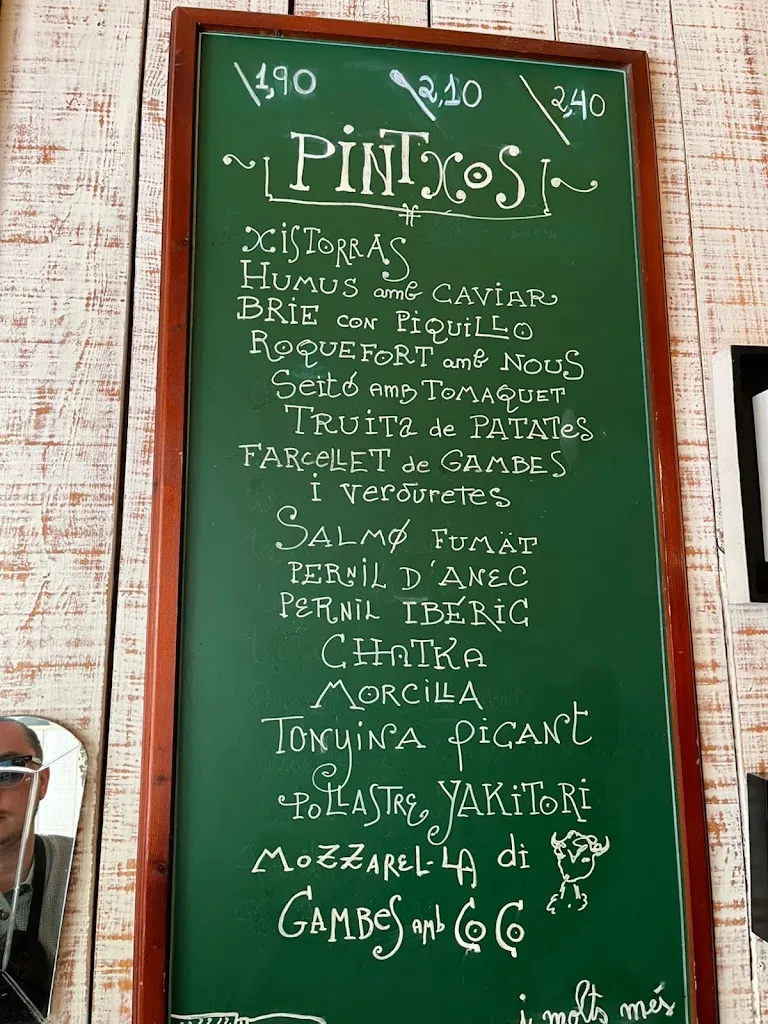 1,90 2,10 2,40
PINTXOS
XISTORRAS
HUMUS amb CAVIAR
BRIE CON PIQUILLO
ROQUEFORT amb NOUS
Seitó AMB TOMAQUET
TRUITa de PATATes
FARCELLET de GAMBES
i verduretes
SALMÓ FUMAT
PERNIL D'ANEC
PERNIL IBÉRIC
CHATKA
MORCILLA
TONYINA PICANT
POLLASTRE YAKITORI
MOZZAREL·LA di
GAMBES AMB COCO
i molts més